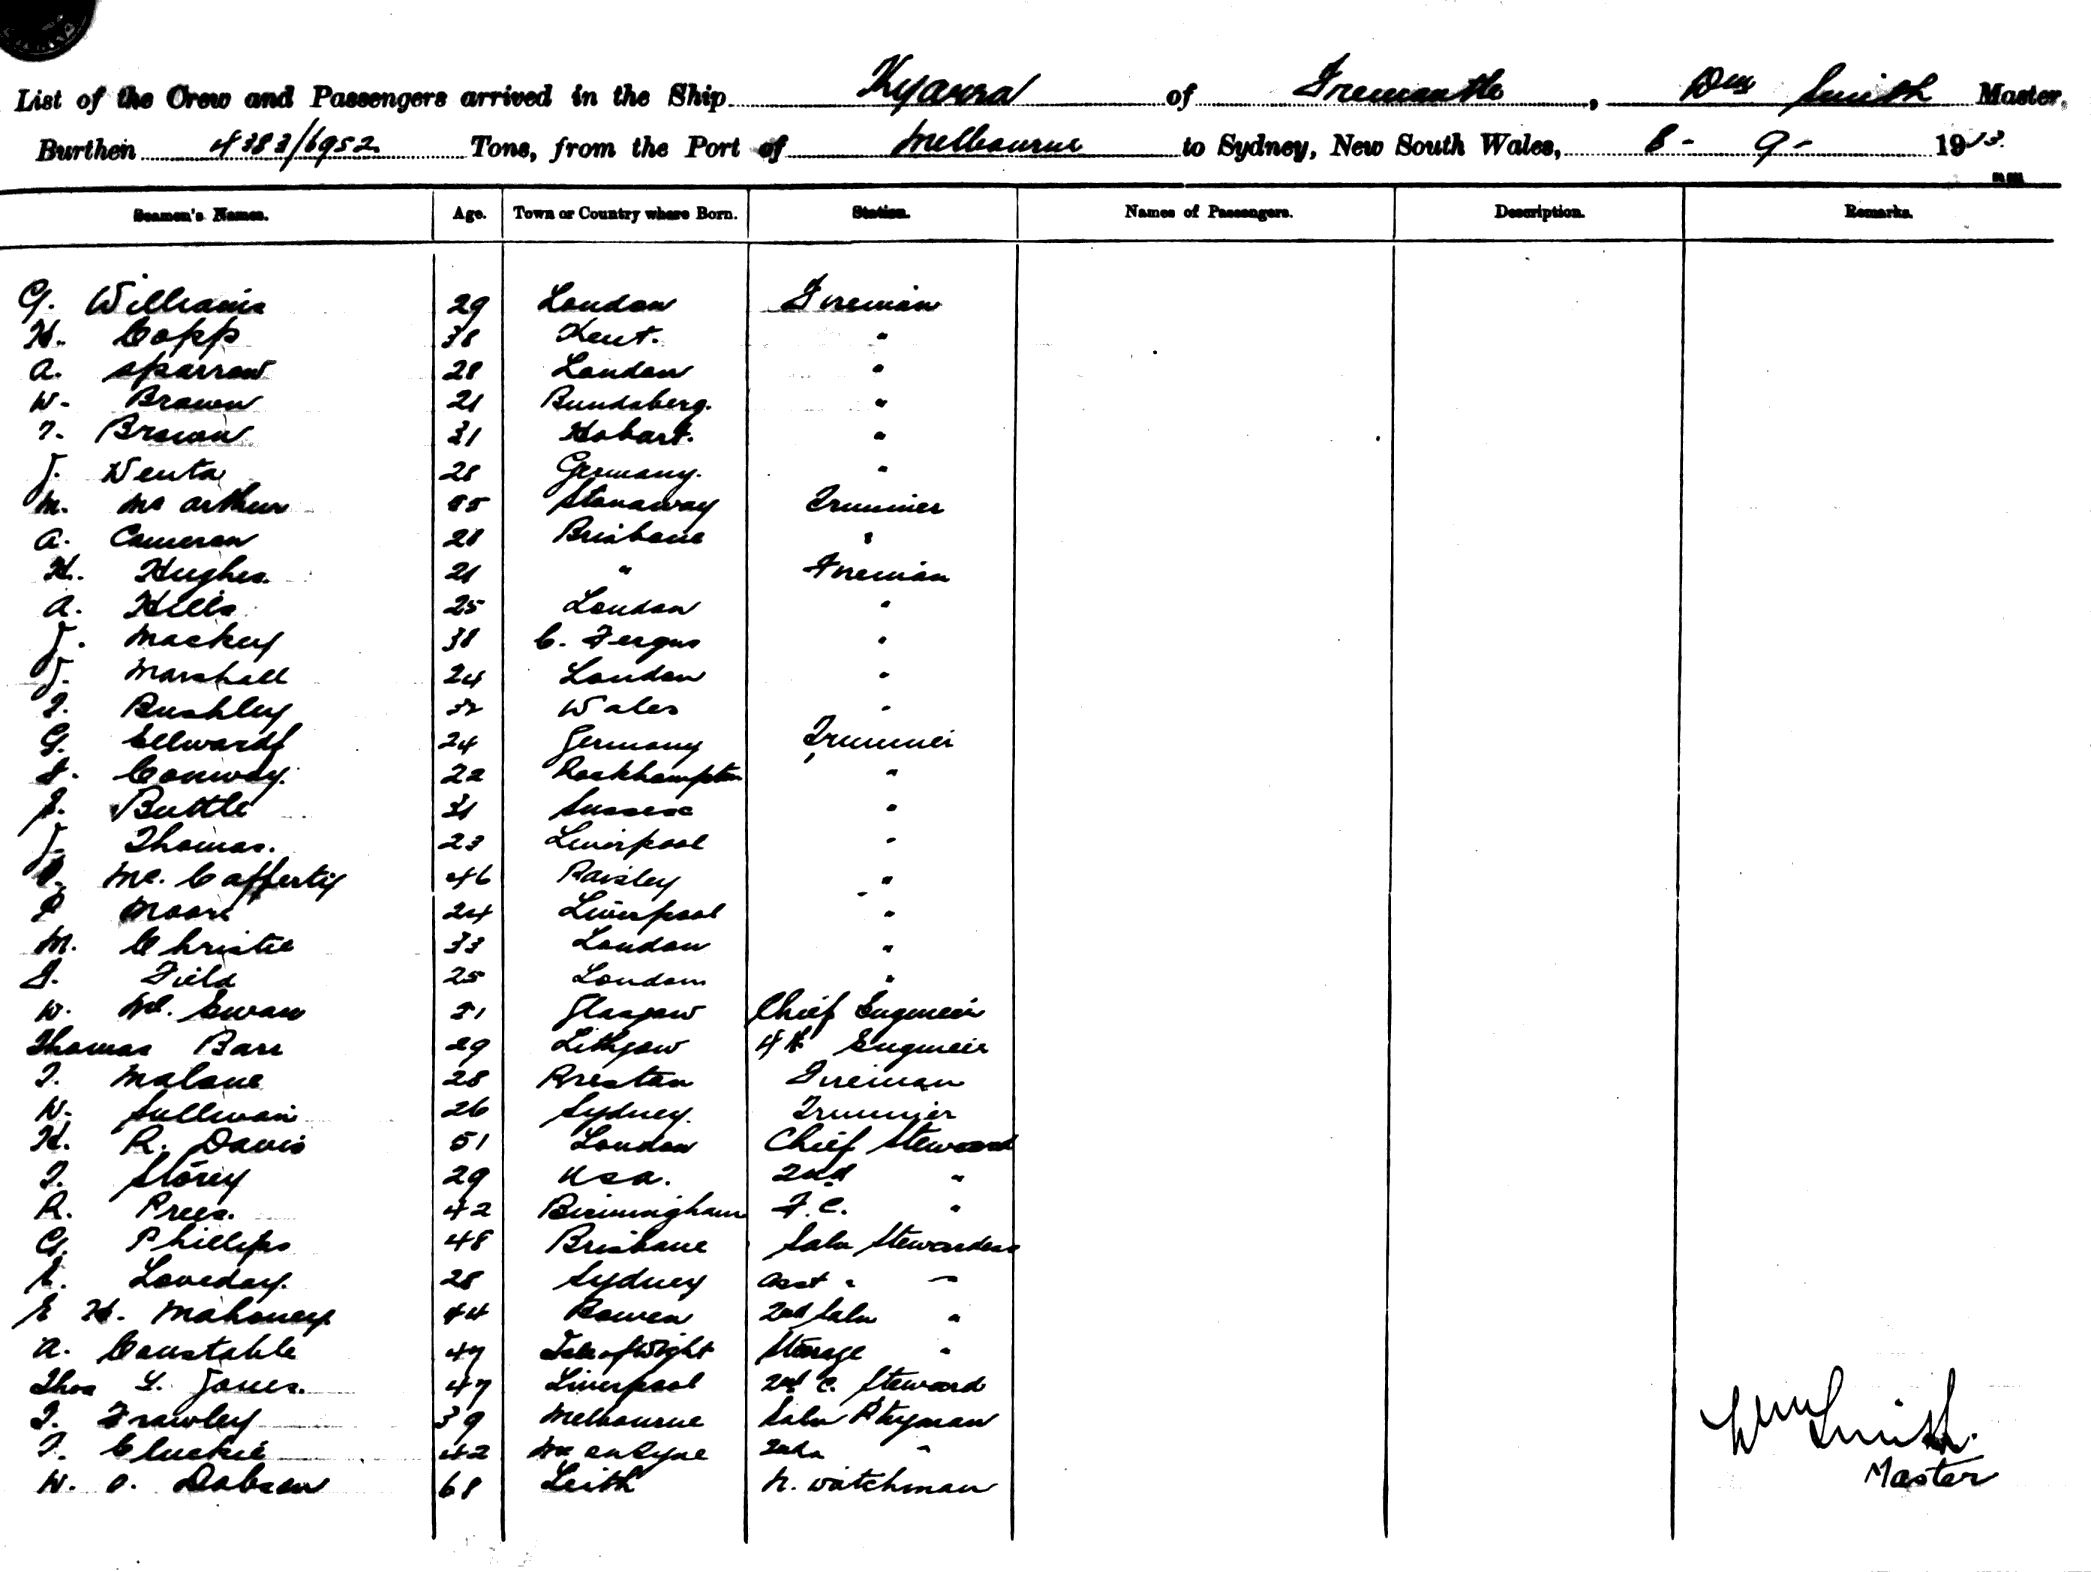 List of the Crew and Passengers arrived in the Ship Kyarra of Fremantle, Wm Smith Master,
Burthen 4383/6952 Tons, from the Port of Melbourne to Sydney, New South Wales, 8 - 9 - 1913
Seamen's Names. Age. Town or Country where Born. Station. Names of Passengers. Description. Remarks.
G. Williams 29 London Fireman
H. Copp 38 Kent. "
A. Sparrow 28 London "
W. Brown 21 Bundaberg. "
T. Brown 31 Hobart. "
J. Wenta 28 Germany. "
M. McArthur Stonaway Trimmer
A. Cameron 28 Brisbane "
H. Hughes 21 " Fireman
A. Hills 25 London "
J. Mackey 38 C. Fergus "
J. Marshall 24 London "
T. Bushley 32 Wales "
G. Ellwardt 24 Germany Trimmer
J. Conway. 22 Rockhampton "
J. Buttle 31 Sussex "
J. Thomas. 23 Liverpool "
Mc. Cafferty 46 Paisley "
P Moore 24 Liverpool "
M. Christie 33 London "
J. Field 25 London "
W. Mc. Ewan 51 Glasgow Chief Engineer
Thomas Barr 29 Lithgow 4th Engineer
T. Malone 28 Preston Fireman
W. Sullivan 26 Sydney. Trimmer
H. R. Davis 51 London Chief Steward
T. Storey 29 USA. 2nd "
R. Prees. 42 Birmingham F.C. "
G. Phillips 48 Brisbane Saln Stewardess
E. Loveday. 28 Sydney Asst " "
E H. Mahoney 44 Bowen 2nd Saln "
A. Constable 47 Isle of Wight Steerage "
Thos Y. Jones. 47 Liverpool 2nd C. Steward
T. Frawley 39 Melbourne Saln P'tryman
T. Cluckie 42 "
W. O. Dobson 68 Leith N. Watchman
Wm Smith.
Master